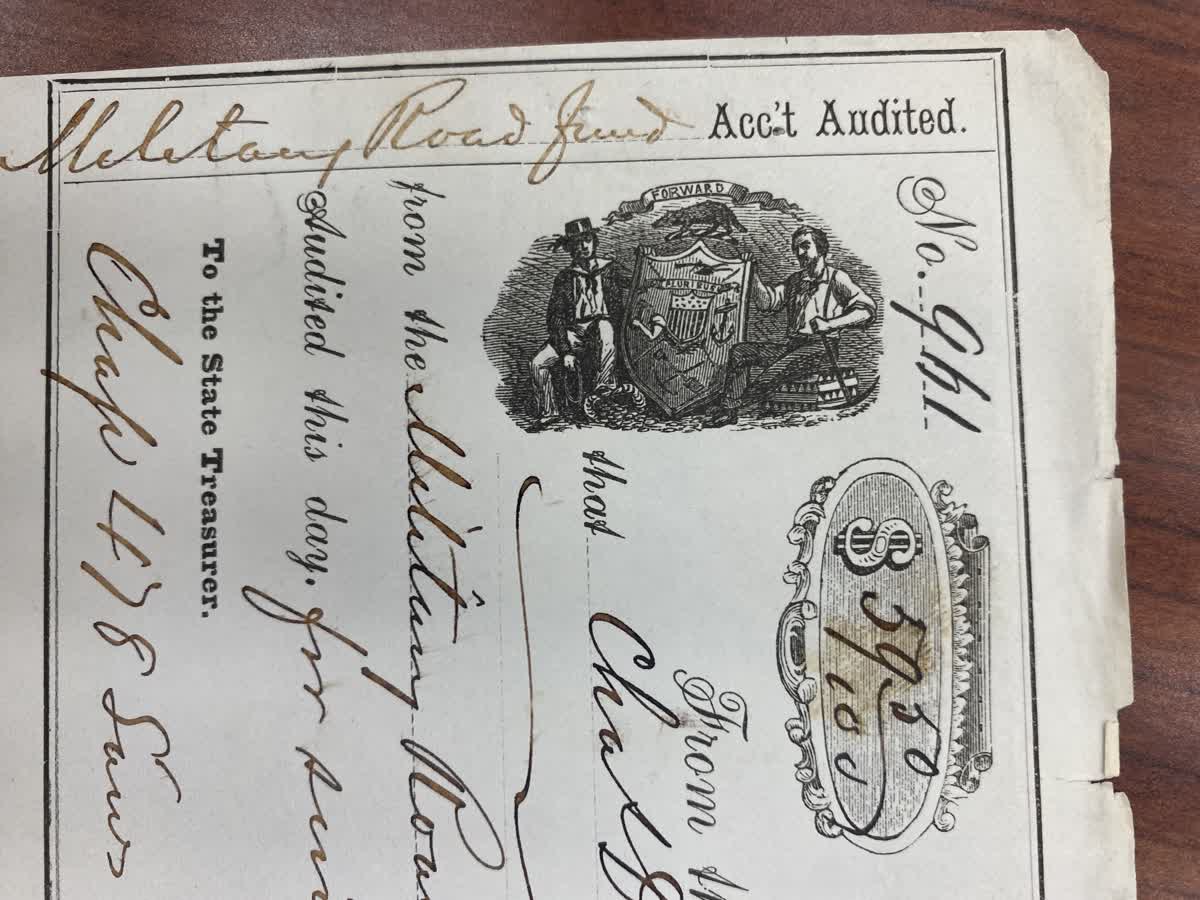 Military Road fund Acc't Audited.
No. 961
FORWARD
PLURIBUS
$ 59 50/100
From th
that Chas
from the Military Roa
Audited this day, for
To the State Treasurer.
Chap 478 Laws